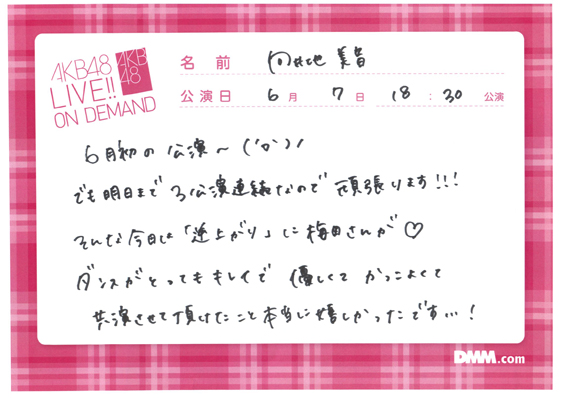 AKB48
LIVE!!
ON DEMAND
AKB
48
名前 向井地 美音
公演日 6月 7日 18:30 公演
6月初の公演〜('か')ノ
でも明日まで3公演連続なので 頑張ります!!!
そんな今日は「逆上がり」に梅田さんが♡
ダンスがとってもキレイで 優しくて かっこよくて
共演させて頂けたこと本当に嬉しかったです…!
DMM.com